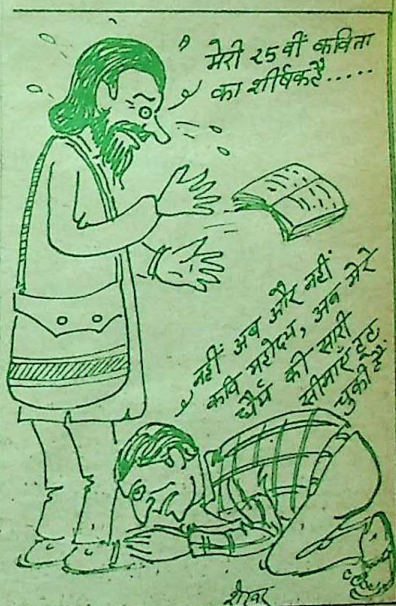 मेरी २५ वीं कविता
का शीर्षक है.....
नहीं अब और नहीं
कवि महोदय, अब मेरे
धैर्य की सारी
सीमाएँ टूट
चुकी हैं.
शेखर